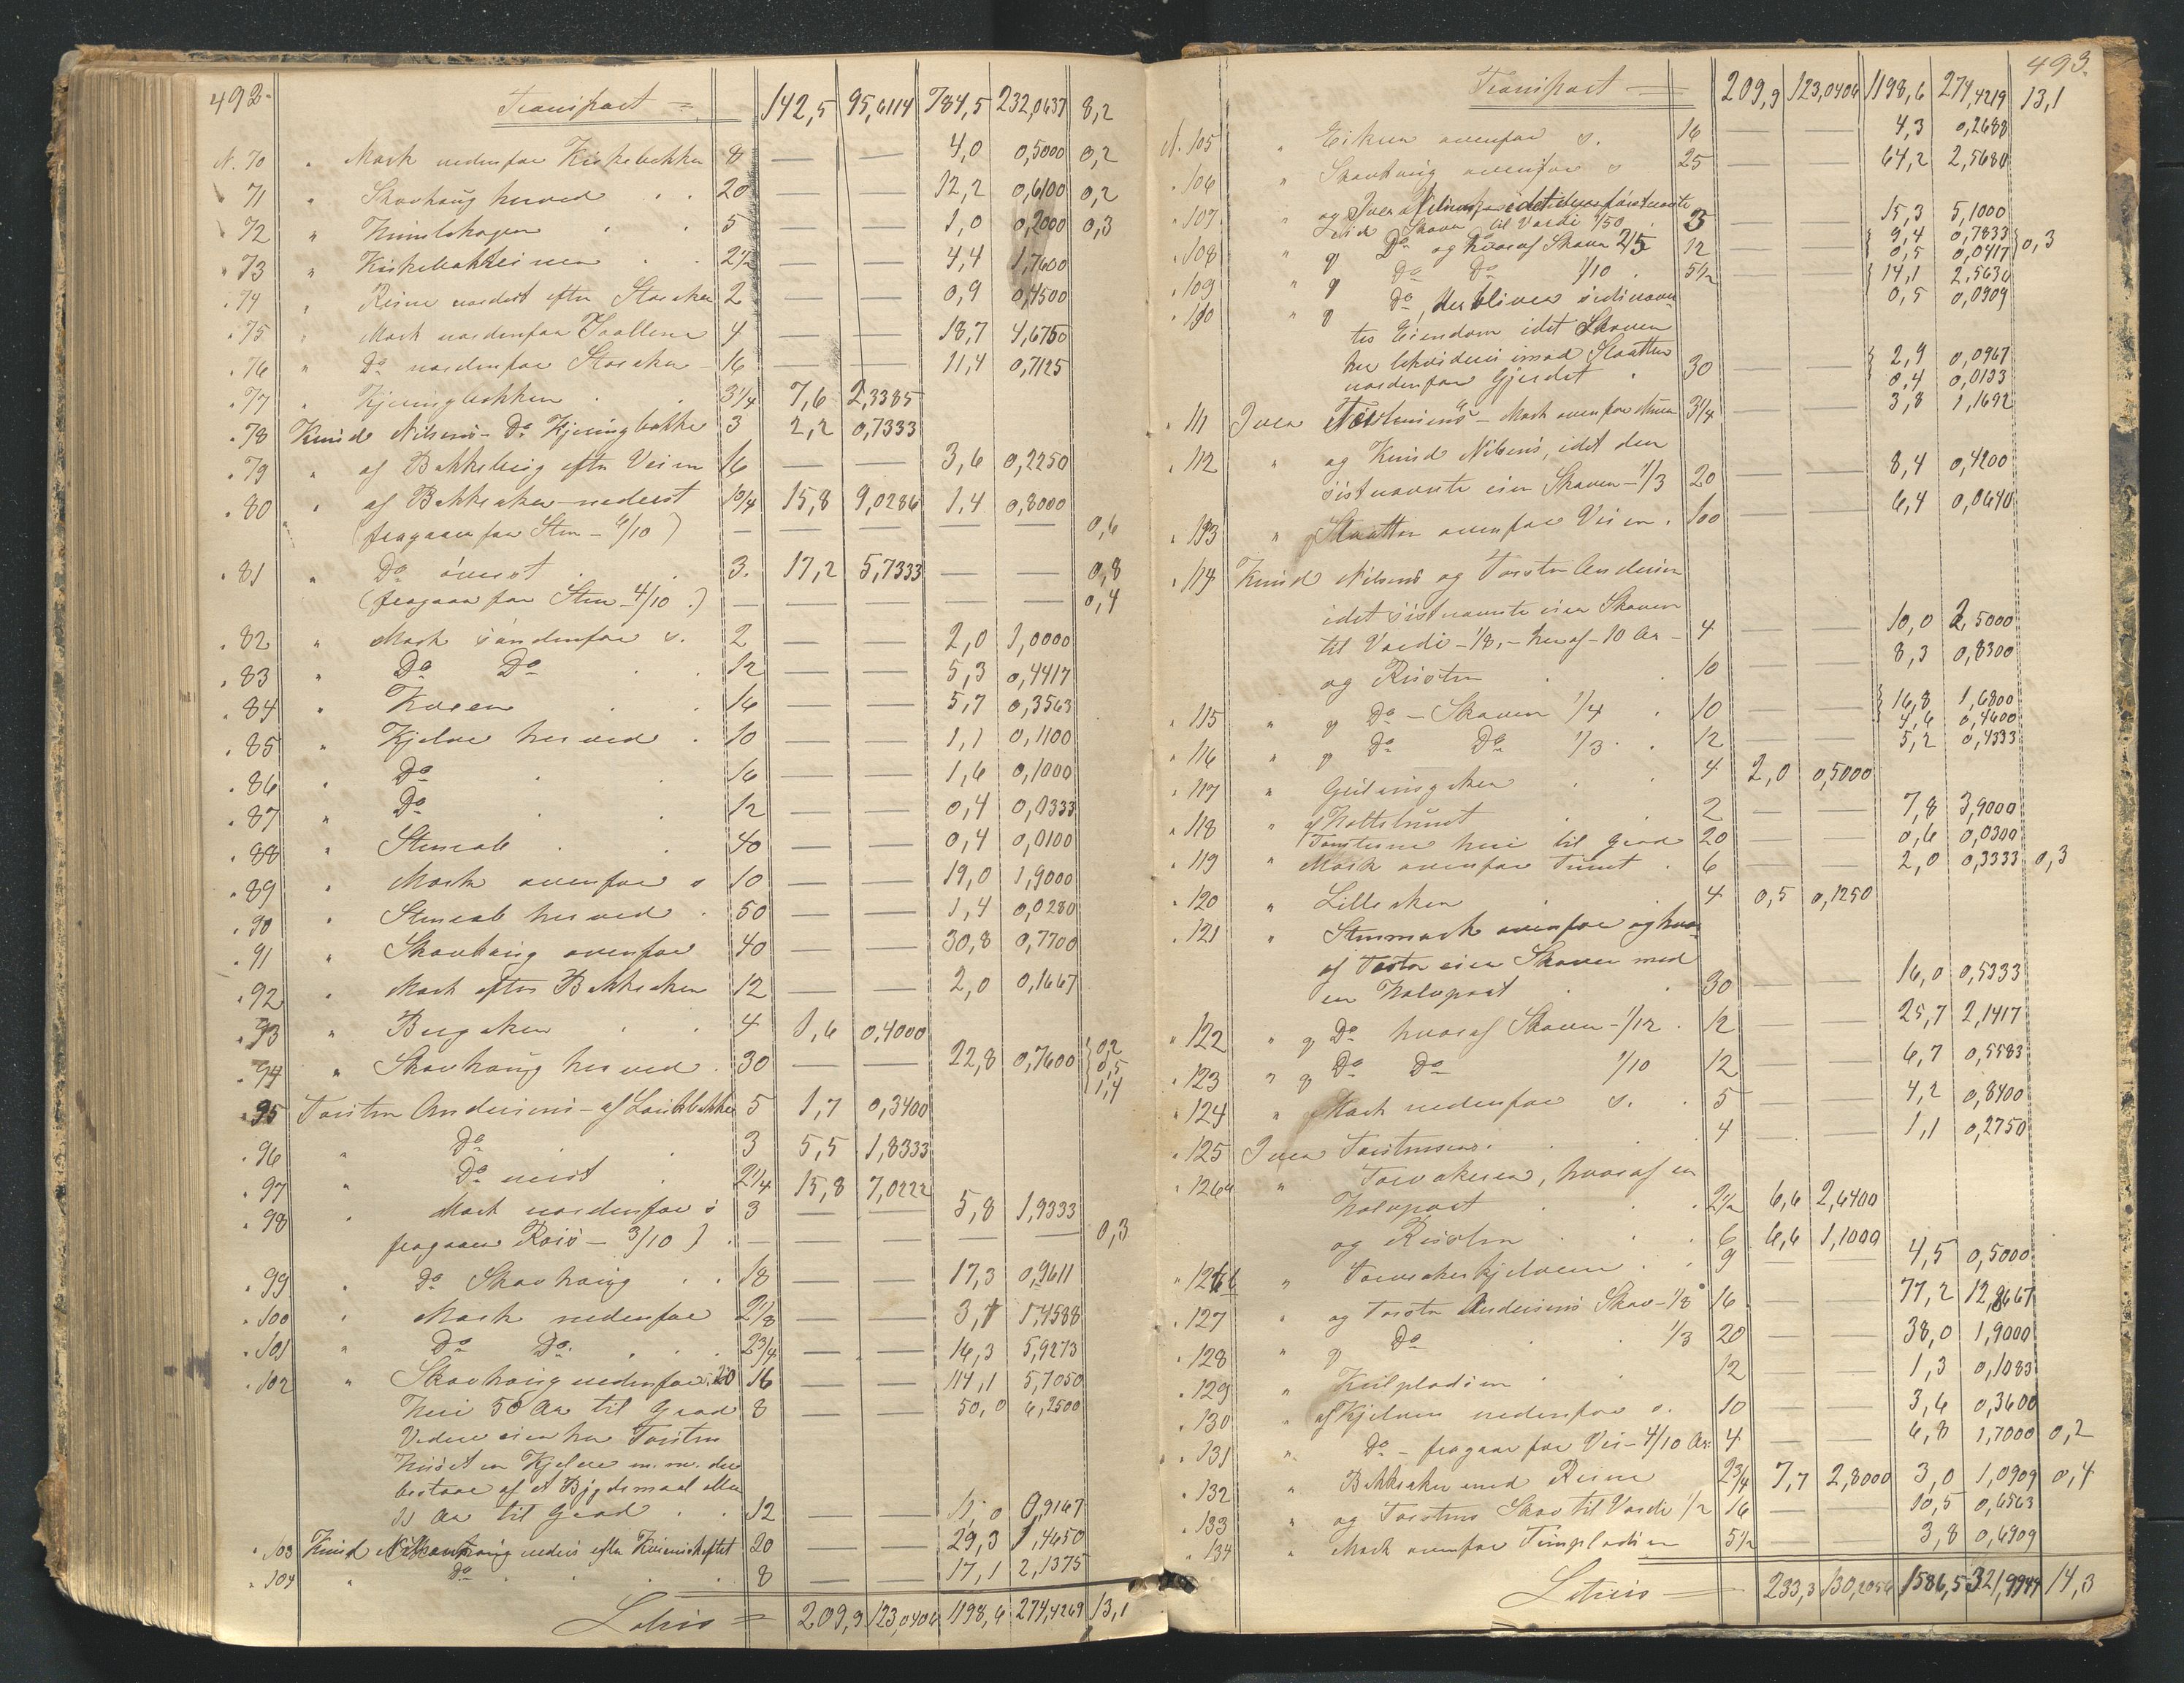 492.
Transport = 142,5 95,6114 784,5 232,0637 8,2
N. 70 " Mark nedenfor Kirkebakken 8 — — 4,0 0,5000 0,2
" 71 " Skovhaug herved 20 — — 12,2 0,6100 0,2
" 72 " Himlehagen 5 — — 1,0 0,2000 0,3
" 73 " Kirkebakkeinen 2 1/2 — — 4,4 1,7600
" 74 " Reine nordest efter Storaker 2 — — 0,9 0,4500
" 75 " Mark nordenfor 4 — — 18,7 4,6750
" 76 " Do nordenfor Storaker 16 — — 11,4 0,7125
" 77 " Kjeringbakken 3 1/4 7,6 2,3385
" 78 Knud Nilsens - Do Kjeringbakke 3 2,2 0,7333
" 79 " af Bakkeleig efter Veien 16 — — 3,6 0,2250
" 80 " af Bakkeaker nederst 1 3/4 15,8 9,0286 1,4 0,8000
(fragaar for Sten - 6/10) — — — — — 0,6
" 81 " Do øverst 3. 17,2 5,7333 — — 0,8
(fragaar for Sten - 4/10.) — — — — — 0,4
" 82 " Mark søndenfor s. 2 — — 2,0 1,0000
" 83 " Do Do 12 — — 5,3 0,4417
" 84 " Haven 16 — — 5,7 0,3563
" 85 " Kjelve herved 10 — — 1,1 0,1100
" 86 " Do 16 — — 1,6 0,1000
" 87 " Do 12 — — 0,4 0,0333
" 88 " Stenrab 40 — — 0,4 0,0100
" 89 " Mark ovenfor s 10 — — 19,0 1,9000
" 90 " Stenrab herved 50 — — 1,4 0,0280
" 91 " Skovhaug ovenfor 40 — — 30,8 0,7700
" 92 " Mark efter Bakkeaker 12 — — 2,0 0,1667
" 93 " Bergaker 4 1,6 0,4000
" 94 " Skovhaug herved 30 — — 22,8 0,7600 0,2 0,5 1,4
" 95 Torsten Andersens - af 5 1,7 0,3400
" 96 " Do 3 5,5 1,8333
" 97 " Do nerst 2 1/4 15,8 7,0222
" 98 " Mark nordenfor s 3 — — 5,8 1,9333
fragaar Røis - 3/10) — — — — — 0,3
" 99 " do Skovhaug 18 — — 17,3 0,9611
" 100 " Mark nedenfor 2 1/8 — — 3,1 1,4588
" 101 " Do Do. 2 3/4 — — 16,3 5,9273
" 102 " Skovhaug nedenfor: 20 16 — — 114,1 5,7050
Heri 50 Ar til Grad 8 — — 50,0 6,2500
Videre eier her Torsten
Huset en Kjelve m. m. der
bestaar af et Bygdemaal eller
Ar til Grad 12 — — 11,0 0,9167
" 103 Knud Nilsens 20 — — 29,3 1,4650
" 104 " do 8 — — 17,1 2,1375
Latus = 209,9 123,0406 1198,6 274,4269 13,1
493.
Transport = 209,9 123,0406 1198,6 274,4219 13,1
N. 105 " Eiken ovenfor s. 16 — — 4,3 0,2688
" 106 " Skovhaug ovenfor s 25 — — 64,2 2,5680
" 107 " og Iver
Skoven til Værdi 1/50 3 — — 15,3 5,1000
" 108 " q Do og hvoraf Skoven 2/5 12 — — 9,4 0,7833 0,3
0,5 0,0417
" 109 " q Do Do 1/10 5 1/2 — — 14,1 2,5636
0,5 0,0909
" 110 " q Do, her bliver sidstnævn
tes Eiendom idet Skoven
her imod Slaatten
nordenfor Gjerdet 30 — — 2,9 0,0967
0,4 0,0133
" 111 Iver Torstensens - Mark ovenfor 3 1/4 3,8 1,1692
" 112 " og Knud Nilsens, idet den
sistnævnte eier Skoven - 1/3 20 — — 8,4 0,4200
" 113 " q Slaatten ovenfor Veien 100 — — 6,4 0,0640
" 114 Knud Nilsens og Torsten Andersens
idet sistnævnte eier Skoven
til Værdi - 1/8. - heraf - 10 Ar 4 — — 10,0 2,5000
og Resten 10 8,3 0,8300
" 115 " q Do - Skoven 1/4 10 — — 16,8 1,6800
4,6 0,4600
" 116 " q Do Do 1/3 12 — — 5,2 0,4333
" 117 " 4 2,0 0,5000
" 118 " af 2 — — 7,8 3,9000
Tomterne heri til Grad 20 — — 0,6 0,0300
" 119 " Mark ovenfor Tunet 6 — — 2,0 0,3333 0,3
" 120 " Lilleaker 4 0,5 0,1250
" 121 " Stenmark ovenfor og hvor
af Torsten eier Skoven med
en Halvpart 30 — — 16,0 0,5333
" 122 " q Do hvoraf Skoven - 1/12 12 — — 25,7 2,1417
" 123 " q Do Do 1/10 12 — — 6,7 0,5583
" 124 " q Mark nedenfor s. 5 — — 4,2 0,8400
" 125 Iver Torstensens 4 — — 1,1 0,2750
" 126a " Torvakeren, hvoraf en
Halvpart 2 1/2 6,6 2,6400
og Resten 6 6,6 1,1000
" 126b " Torvakerkjelven 9 — — 4,5 0,5000
" 127 " og Torsten Andersens Skov - 1/8 16 — — 77,2 12,8667
" 128 " q Do 1/3 20 — — 38,0 1,9000
" 129 " Kvilpladsen 12 — — 1,3 0,1083
" 130 " af Kjelven nedenfor s. 10 — — 3,6 0,3600
" 131 " Do - fragaar for Vei - 4/10 Ar 4 — — 6,8 1,7000 0,2
" 132 " Bakkeaker med Reine 2 3/4 7,7 2,8000 3,0 1,0909 0,4
" 133 " og Torstens Skov til Værdi 1/2 16 — — 10,5 0,6563
" 134 " Mark ovenfor 5 1/2 — — 3,8 0,6909
Latus = 233,3 130,2056 1586,5 321,9949 14,3